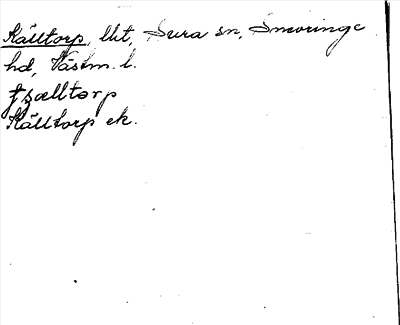 Källtorp, lht, Sura sn, Snevringe
hd, Västm. l.
ʈȿælltorp
Källtorp ek.